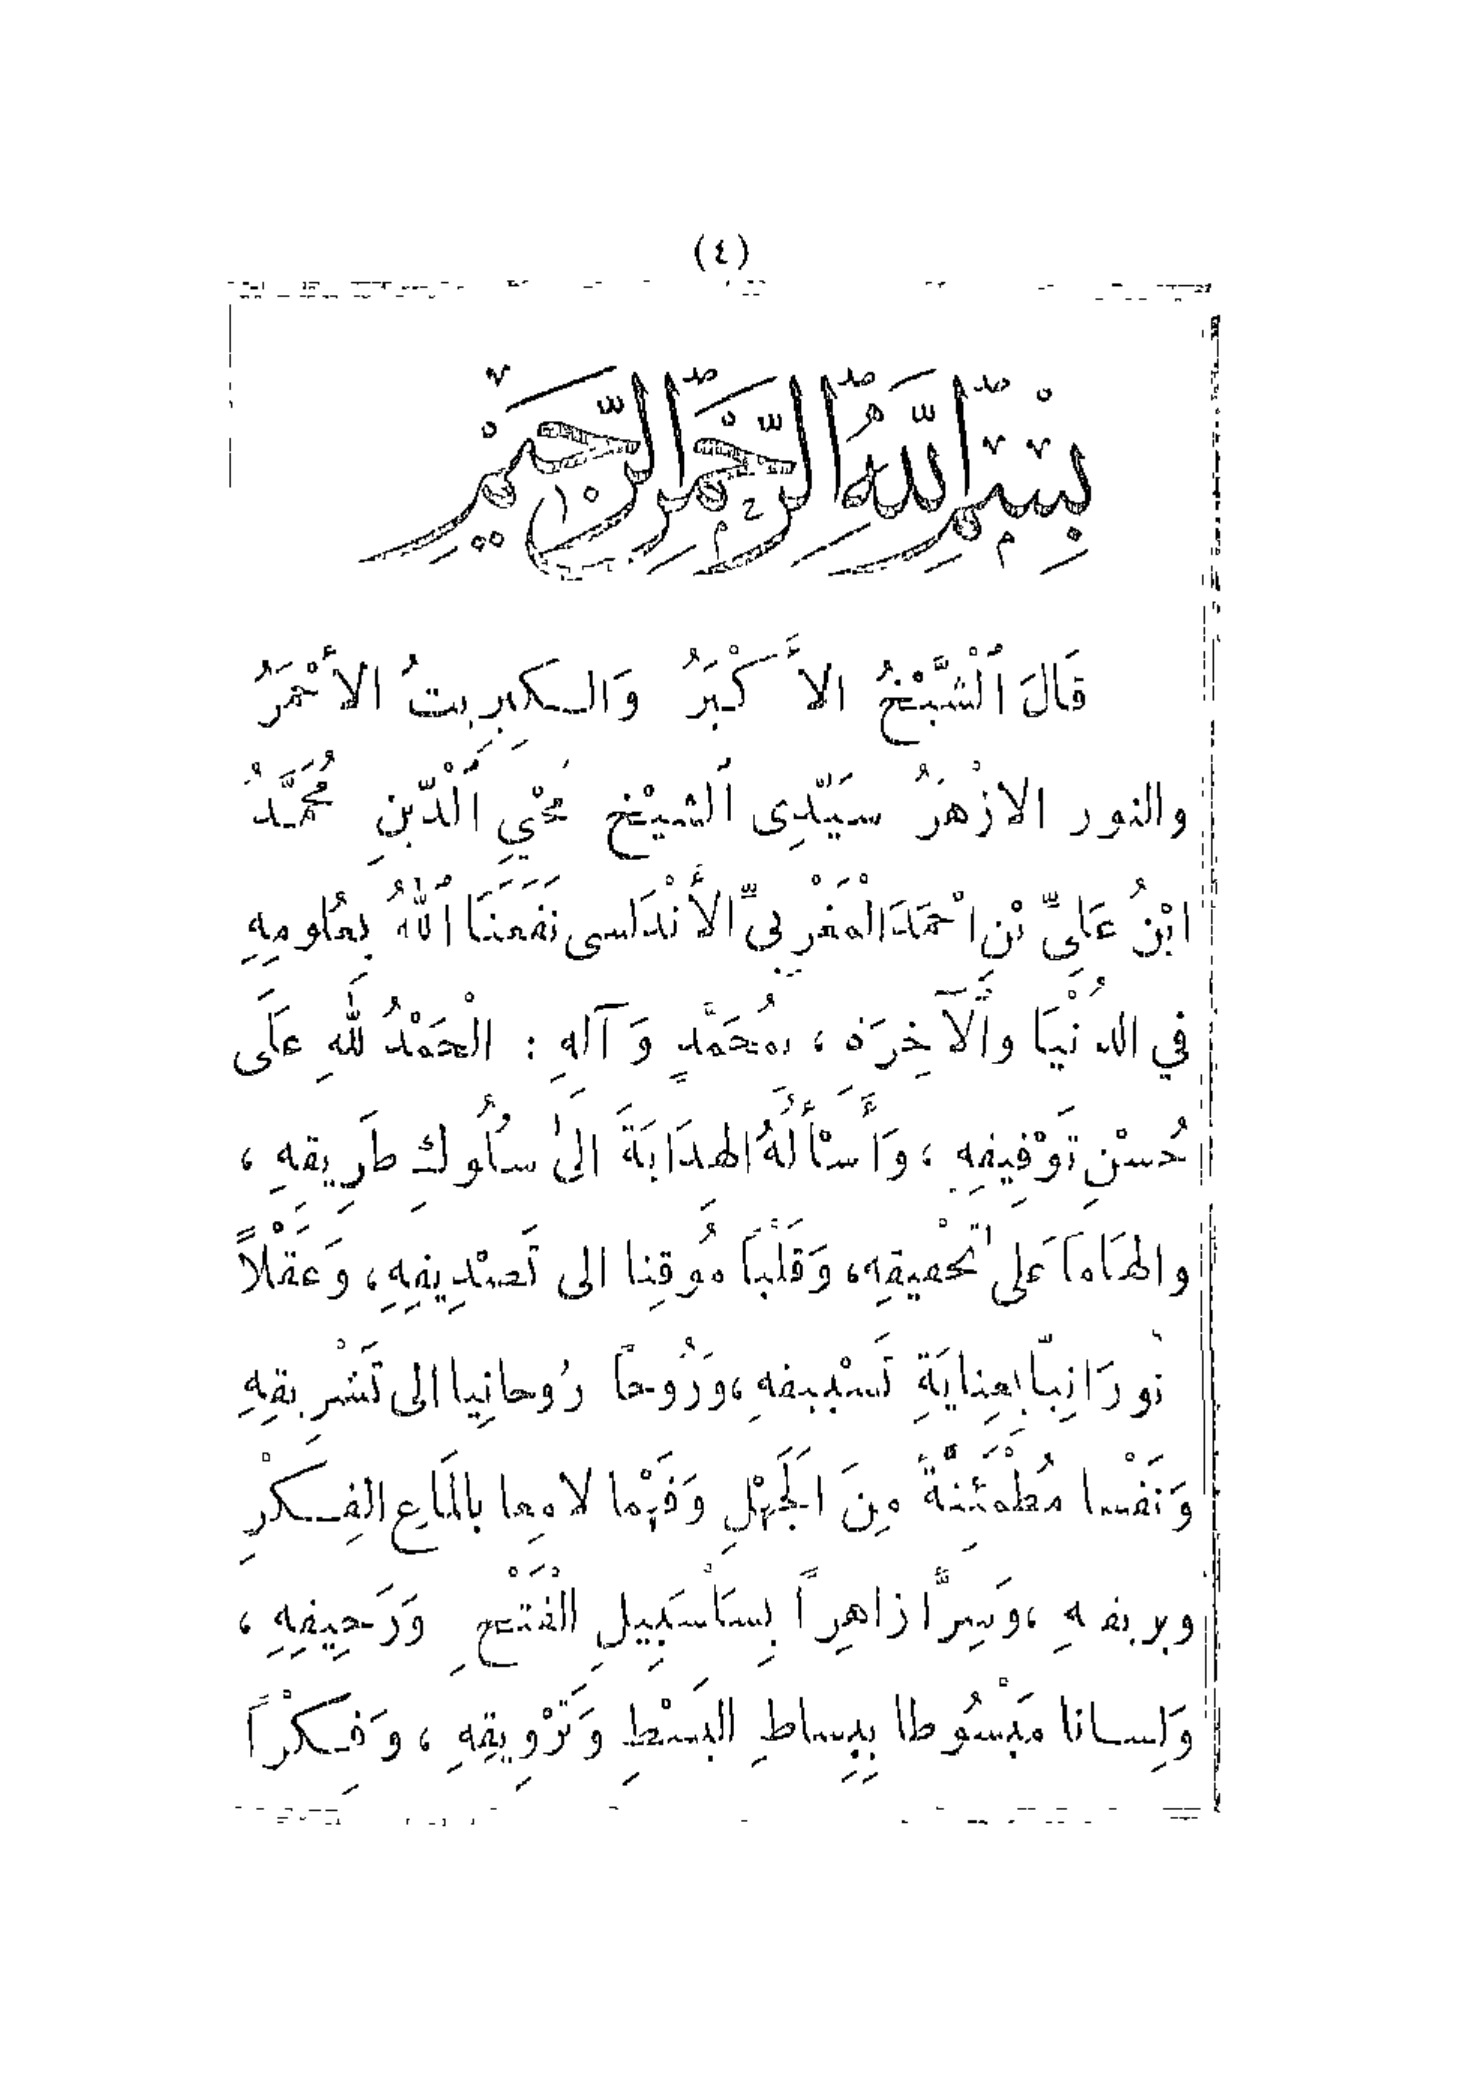 (٤)
بِسْمِ اللَّهِ الرَّحْمٰنِ الرَّحِيمِ
قَالَ ٱلشَّيْخُ الأَكْبَرُ وَالكِبرِيتُ الأَحْمَرُ
والنور الازْهَرُ سَيِّدِى ٱلشيْخ مُحْيِي ٱلْدِّينِ مُحَمَّدُ
ابْنُ عَلِيِّ بْنِ احْمَدَ الْمَغْرِبِيِّ الأَنْدَلسى نَفَعَنَا ٱللهُ بِعُلومِهِ
في الدُنْيَا وَالْآخِرَه ، بمُحَمَّدٍ وَآلهِ : الْحَمْدُ لِلهِ عَلَى
حُسْنِ تَوْفِيقِهِ ، وَأَسْأَلُهُ الهِدَايَةَ الىٰ سُلُوكِ طَرِيقِهِ ،
والهَامَاً عَلى تَحْقيقِه، وَقَلْبَاً مُوقِنا الى تَصْدِيقِهِ، وَعَقْلاً
نُورَانِيّاً بِعِنايَةِ تَسْبيقهِ ،وَرُوحاً رُوحانِيا الى تَشْرِيقِهِ
وَنَفْسا مُطْمَئِنَّةً مِنَ الجَهْلِ وَفَهْما لامِعا بالمَاعِ الفِكْرِ
وبريقهِ ،وَسِرًّا زاهِراً بِسَلْسَبِيلِ الْفَتْحِ وَرَحِيقِهِ ،
وَلِسانا مَبْسُوطا بِبِساطِ البَسْطِ وَتَرْوِيقِهِ ، وَفِكْراً